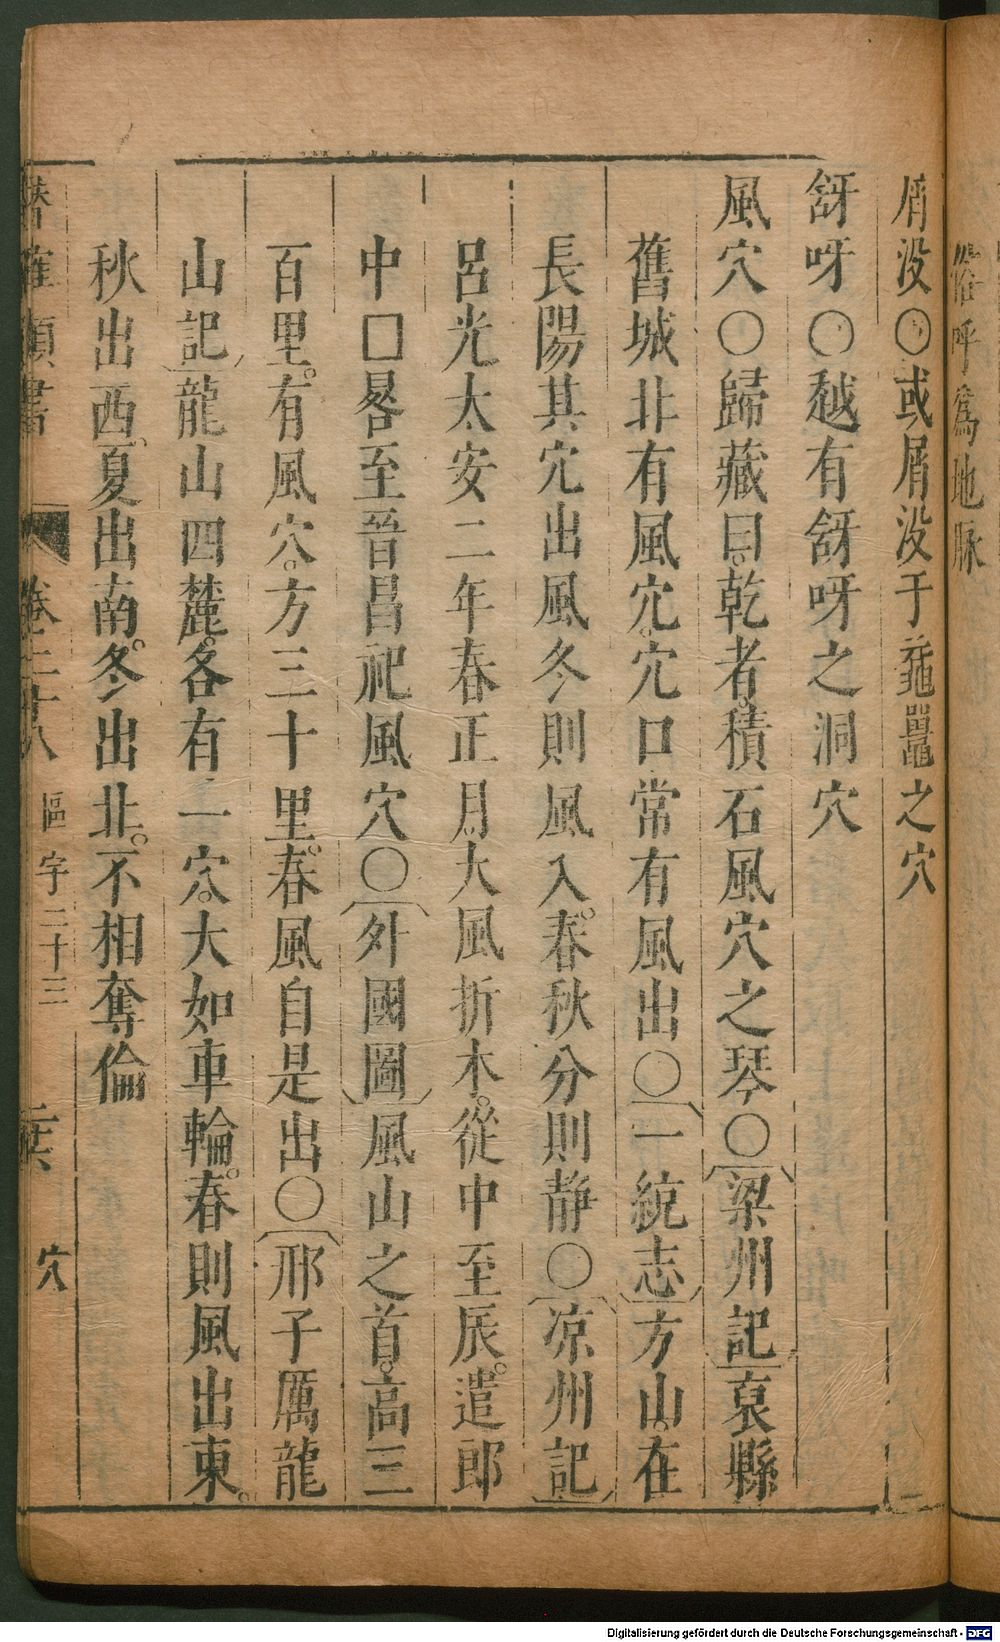 俗呼為地脉
屑没○或屑没于䵷黽之穴
谺呀○越有谺呀之洞穴
風穴○歸藏曰乾者積石風穴之琴○梁州記袁縣
舊城非有風穴穴口常有風出○一統志方山在
長陽其穴出風冬則風入春秋分則静○凉州記
呂光太安二年春正月大風折木從中至辰遣郎
中□晷至晉昌祀風穴○外國圖風山之首高三
百里有風穴方三十里春風自是出○邢子厲龍
山記龍山四麓各有一穴大如車輪春則風出東
秋出西夏出南冬出北不相奪倫
潛確類書 卷二十八 區字二十三 二六 穴
Digitalisierung gefördert durch die Deutsche Forschungsgemeinschaft - DFG